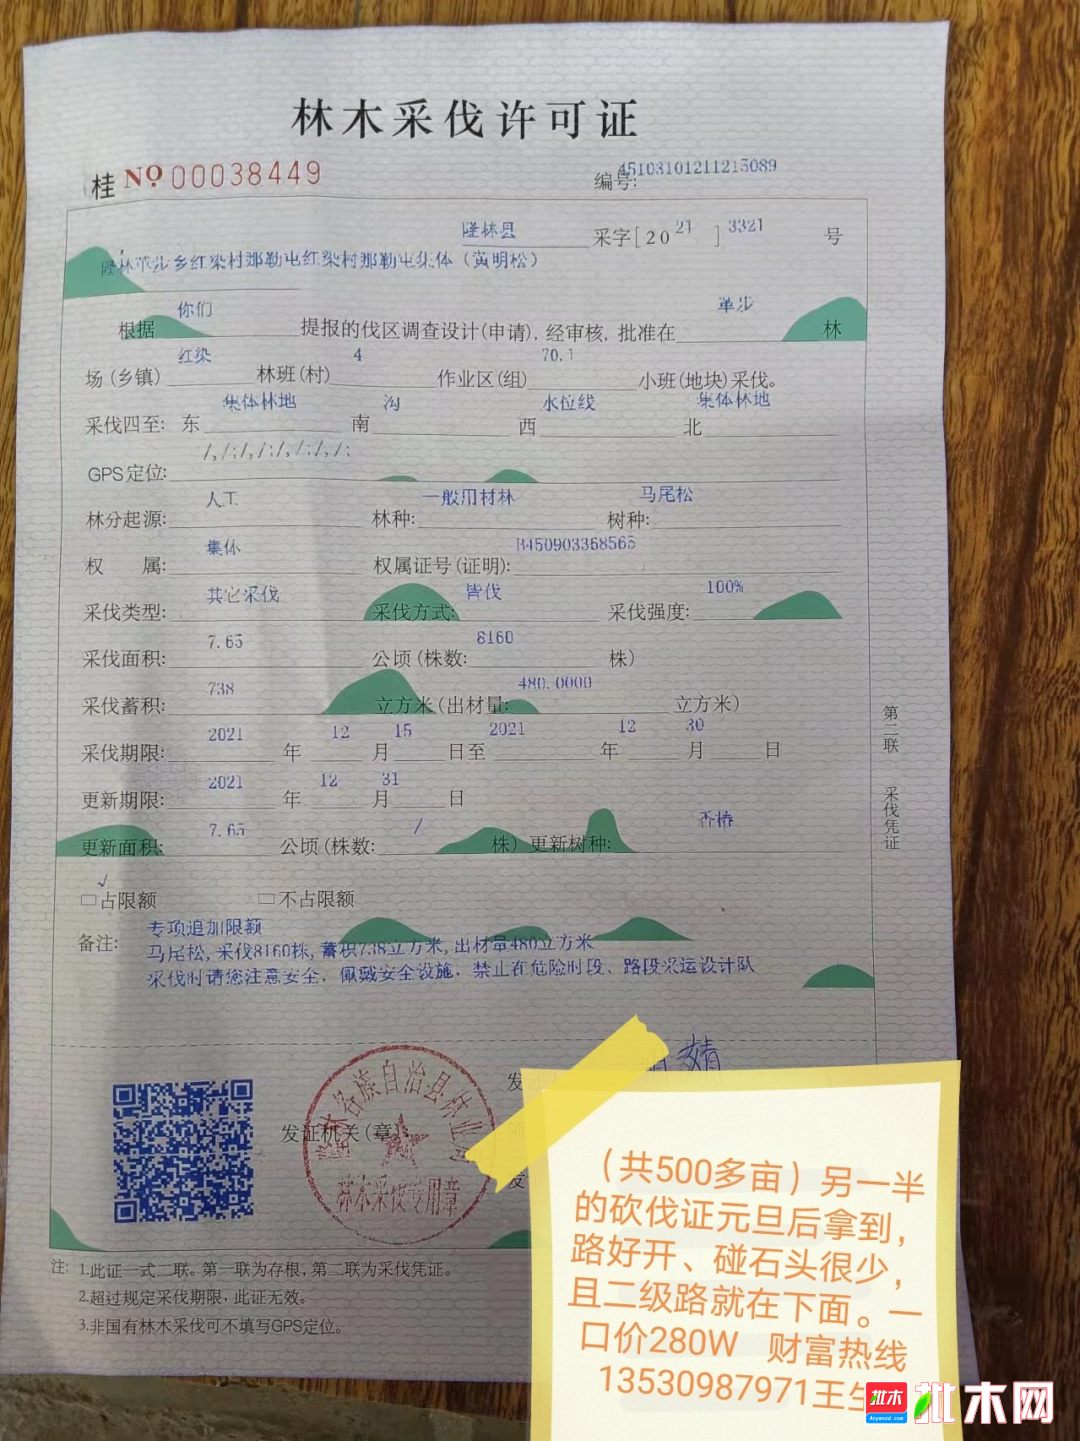 林木采伐许可证
桂 № 00038449
编号: 45103101211213089
隆林县 采字[2021]3321号
隆林革步乡红染村那勒屯红染村那勒屯集体（黄明松）
根据 你们 提报的伐区调查设计(申请), 经审核, 批准在 革步 林
场(乡镇) 红染 林班(村) 4 作业区(组) 70.1 小班(地块)采伐。
采伐四至: 东 集体林地 南 沟 西 水位线 北 集体林地
GPS定位: /,/;/,/;/,/;/,/;
林分起源: 人工 林种: 一般用材林 树种: 马尾松
权 属: 集体 权属证号(证明): B450903368565
采伐类型: 其它采伐 采伐方式: 皆伐 采伐强度: 100%
采伐面积: 7.65 公顷(株数: 8160 株)
采伐蓄积: 738 立方米(出材量: 480.0000 立方米)
采伐期限: 2021 年 12 月 15 日至 2021 年 12 月 30 日
更新期限: 2021 年 12 月 31 日
更新面积: 7.65 公顷(株数: / 株) 更新树种: 香椿
√
□占限额 □不占限额
备注: 专项追加限额
马尾松, 采伐8160株, 蓄积738立方米, 出材量480立方米
采伐时请您注意安全, 佩戴安全设施, 禁止在危险时段、路段采运设计队
第二联 采伐凭证
婧
发
发证机关(章)
各族自治县林业局
林木采伐专用章
注: 1.此证一式二联。第一联为存根, 第二联为采伐凭证。
2.超过规定采伐期限, 此证无效。
3.非国有林木采伐可不填写GPS定位。
（共500多亩）另一半
的砍伐证元旦后拿到，
路好开、碰石头很少，
且二级路就在下面。一
口价280W 财富热线
13530987971王生
批木 Anywood.com 批木网